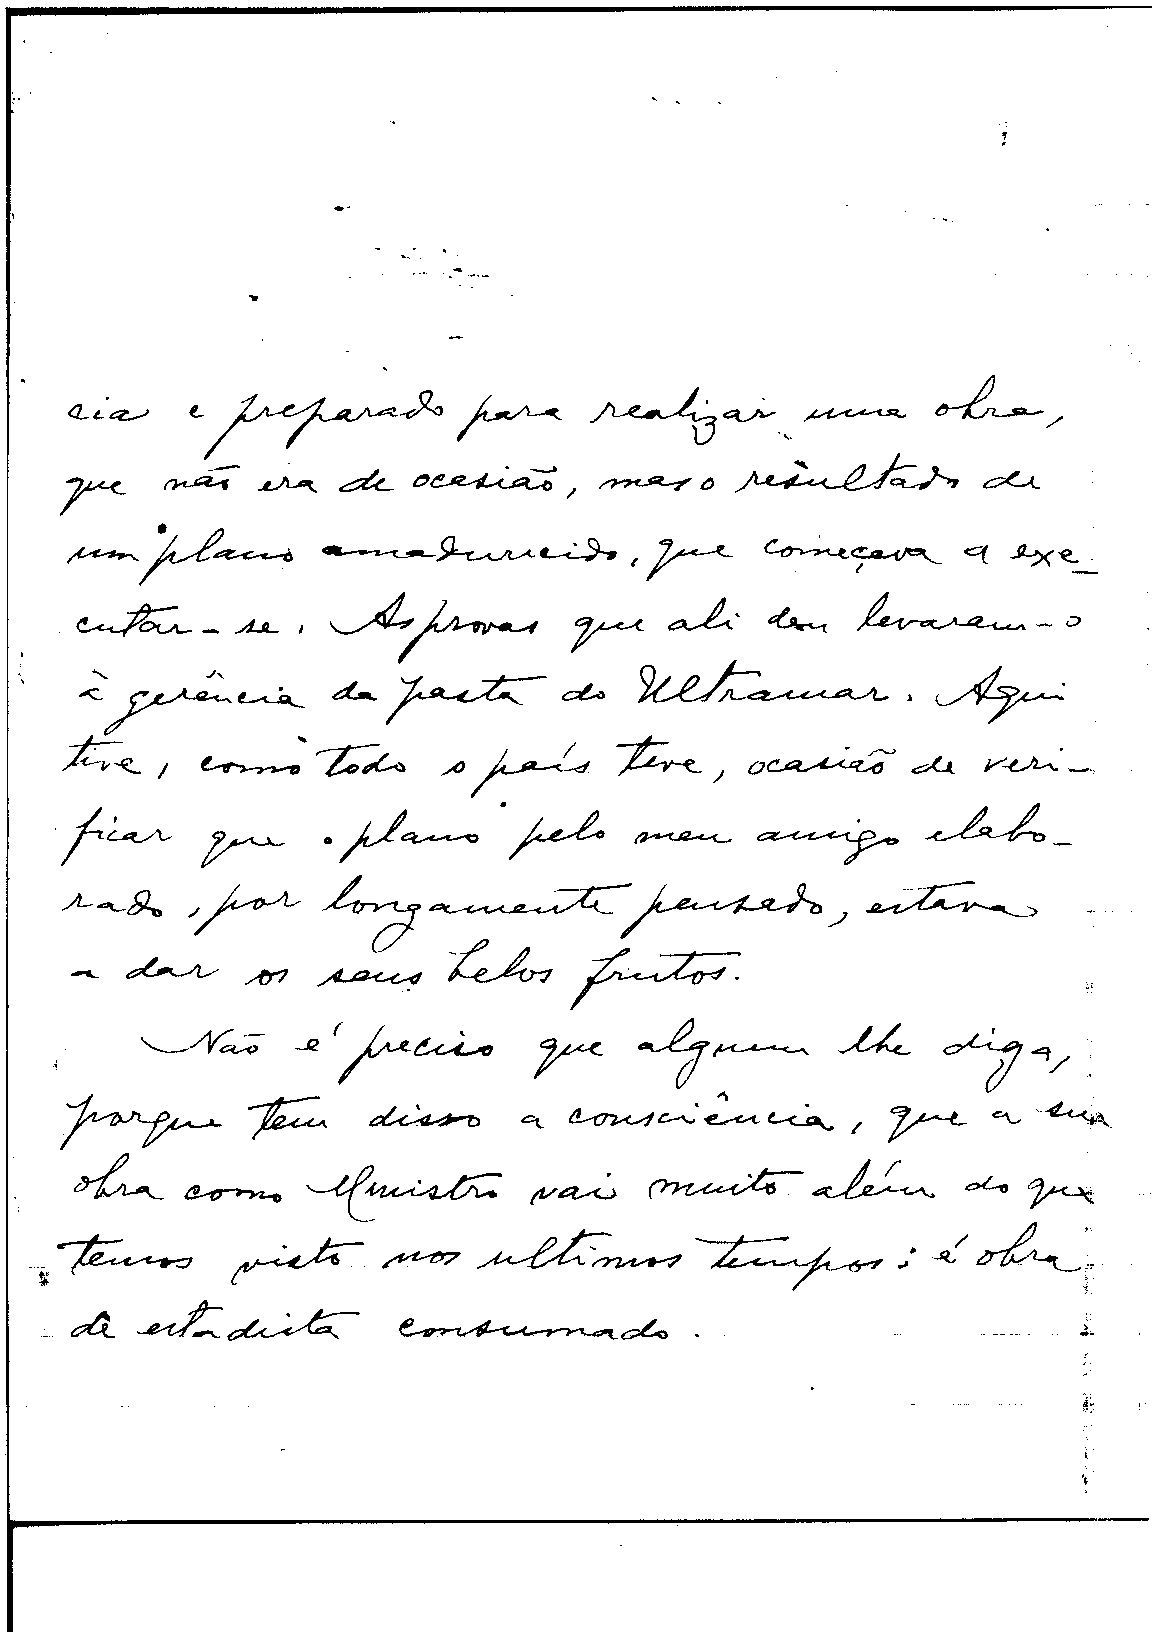 cia e preparado para realizar uma obra,
que não era de ocasião, mas o resultado de
um plano amadurecido, que começava a exe-
cutar-se. As provas que ali deu levaram-o
à gerência da pasta do Ultramar. Aqui
tive, como todo o país teve, ocasião de veri-
ficar que o plano pelo meu amigo elabo-
rado, por longamente pensado, estava
a dar os seus belos frutos.
Não é preciso que alguem lhe diga,
porque tem disso a consciência, que a sua
obra como Ministro vai muito além do que
temos visto nos ultimos tempos: é obra
de estadista consumado.